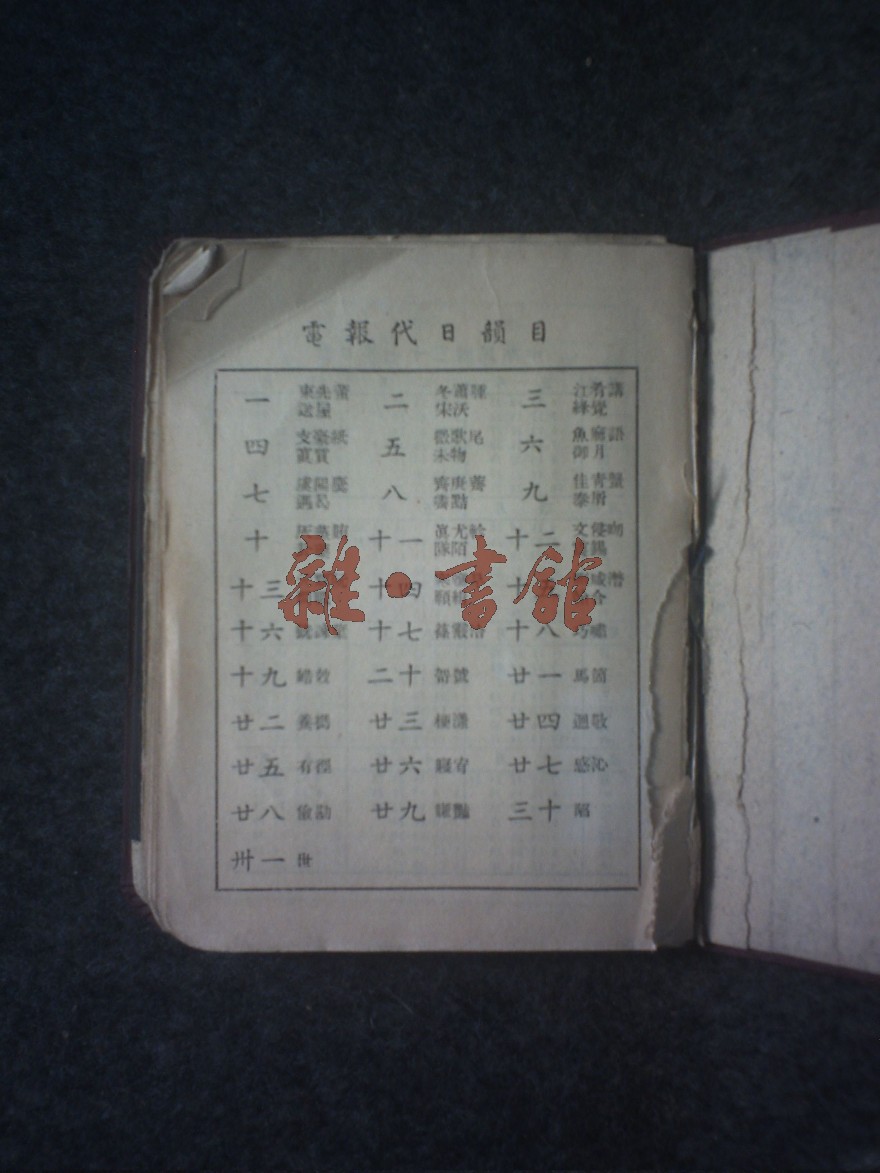 電報代日韻目
一 東先董 二 冬蕭腫 三 江肴講
送屋 宋沃 絳覺
四 支豪紙 五 微歌尾 六 魚麻語
寘質 未物 御月
七 虞陽麌 八 齊庚薺 九 佳青蟹
遇曷 霽黠 泰屑
十 灰蒸賄 十一 眞尤軫 十二 文侵吻
隊陌 錫
十三 十四 十 咸潸
願 合
十六 諫 十七 篠霰洽 十八 巧嘯
十九 皓效 二十 哿號 廿一 馬箇
廿二 養禡 廿三 梗漾 廿四 迥敬
廿五 有徑 廿六 寢宥 廿七 感沁
廿八 儉勘 廿九 豏豔 三十 陷
卅一 世
雜·書館